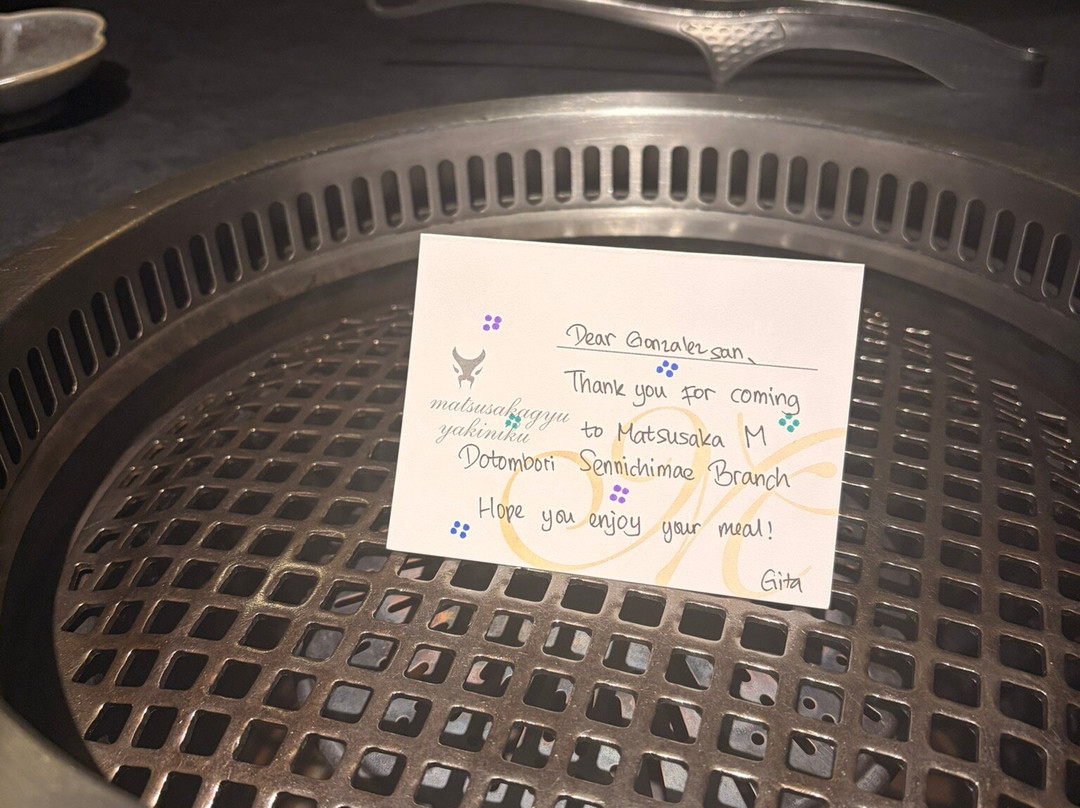 Dear Gonzalez san,
Thank you for coming
matsusakagyu
yakiniku
to Matsusaka M
Dotombori Sennichimae Branch
Hope you enjoy your meal!
Gita